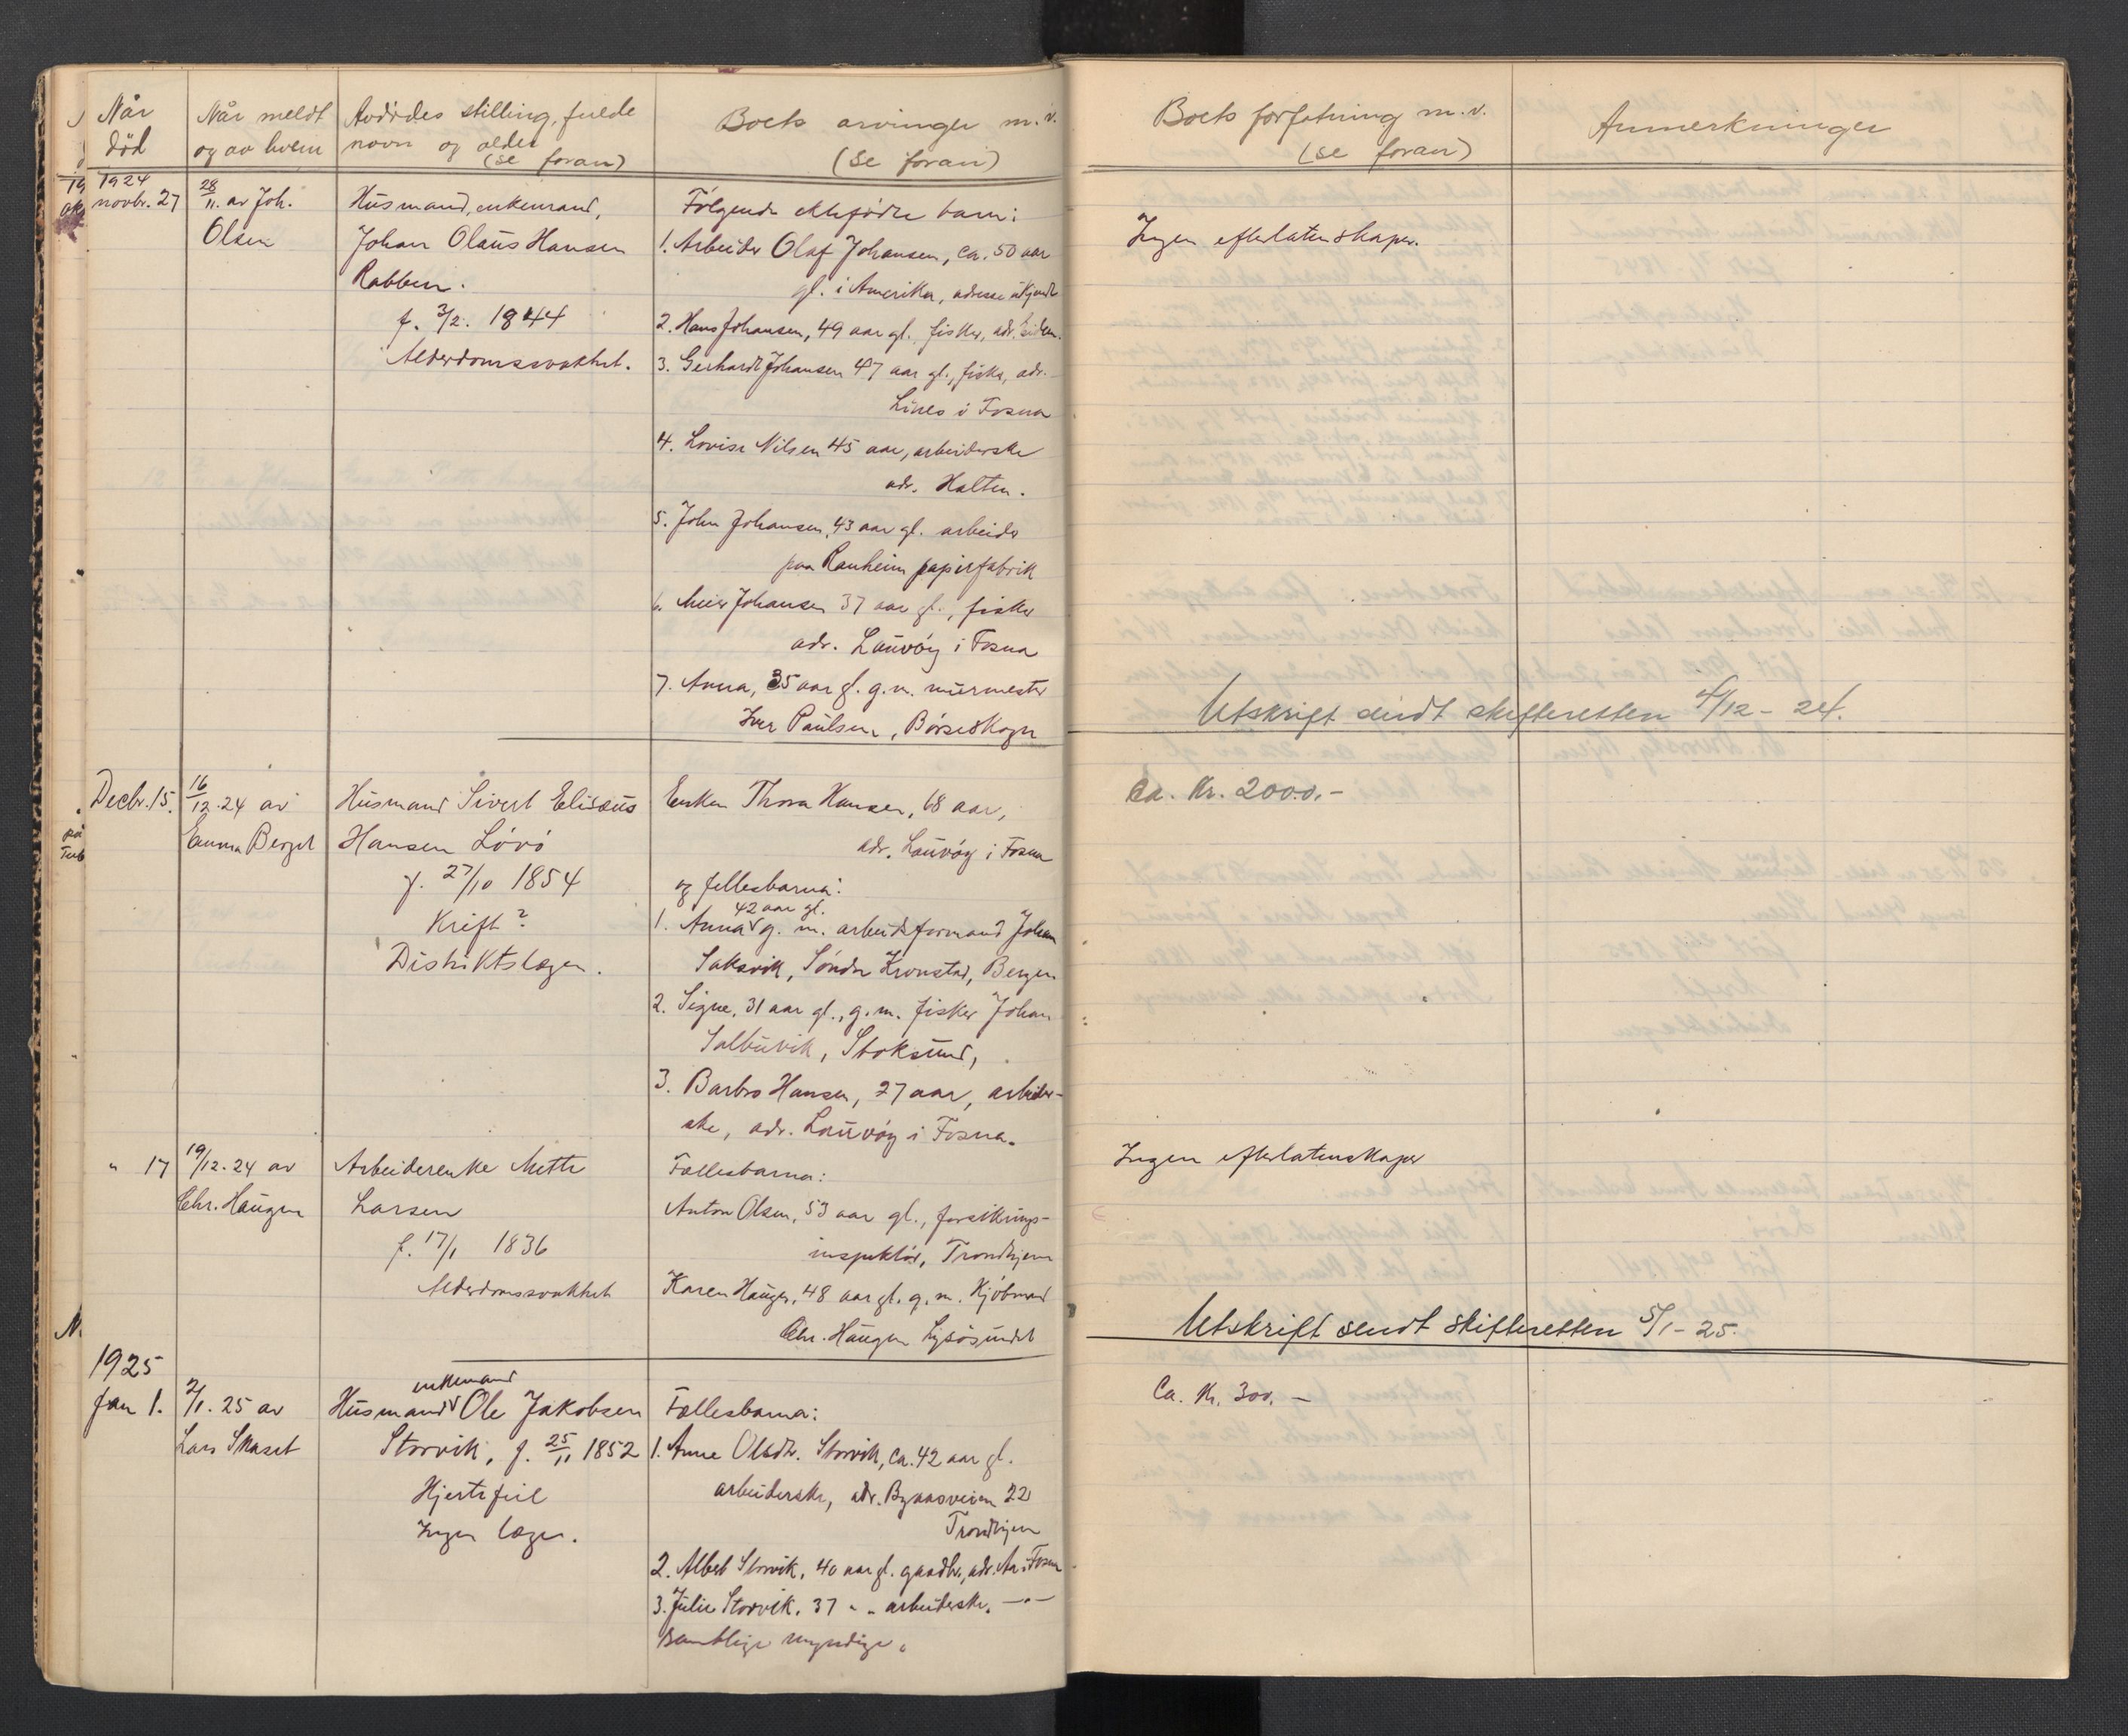 Når død
Når meldt og av hvem
Avdødes stilling, fulde navn og alder (se foran)
Boets arvinger m.v. (Se foran)
Boets forfatning m.v. (se foran)
Anmerkninger
1924
novbr. 27
28/11. av Joh.
Olsen
Husmand, enkemand,
Johan Olaus Hansen
Rabben.
f. 3/2. 1844
Alderdomssvakhet.
Følgende ektefødte barn:
1. Arbeider Olaf Johansen, ca. 50 aar
gl. i Amerika, adresse ukjendt
2. Hans Johansen, 49 aar gl. fisker, adr.
3. Gerhardt Johansen 47 aar gl., fisker, adr.
Lines i Fosna
4. Lovise Nilsen 45 aar, arbeiderske
adr. Halten.
5. John Johansen, 43 aar gl. arbeider
paa Ranheim papirfabrik
6. Meier Johansen 37 aar gl., fisker
adr. Lauvøy i Fosna
7. Anna, 35 aar gl. g.m. murmester
Iver Paulsen, Børseskogn
Ingen efterlatenskaper.
Utskrift sendt skifteretten 4/12 - 24.
Decbr. 15.
16/12. 24 av
Emma Berget
Husmand Sivert Elisæus
Hansen Løvø
f. 27/10 1854
Kræft?
Distriktslægen.
Enken Thora Hansen, 68 aar,
adr. Lauvøy i Fosna
og fellesbarna:
42 aar gl.
1. Anna g. m. arbeidsformand Johan
Saksvik, Søndre Kronstad, Bergen
2. Signe, 31 aar gl., g.m. fisker Johan
Salbuvik, Stoksund,
3. Barbro Hansen, 27 aar, arbeider-
ske, adr. Lauvøy i Fosna.
Ca. Kr. 2000.-
" 17
19/12. 24 av
Chr. Haugen
Arbeiderenke Mette
Larsen
f. 17/1 1836
Alderdomssvakhet
Fællesbarna:
Anton Olsen, 53 aar gl., forsikrings-
inspektør, Trondhjem
Karen Haugen, 48 aar gl. g. m. Kjøbmand
Chr. Haugen Lysøsundet
Ingen efterlatenskaper
Utskrift sendt skifteretten 5/1 - 25.
1925
Jan 1.
2/1. 25 av
Lars Skaset
enkemand
Husmand Ole Jakobsen
Storvik, f. 25/11 1852
Hjertefeil
Ingen læge.
Fællesbarna:
1. Anne Olsdtr. Storvik, ca. 42 aar gl.
arbeiderske, adr. Bynesveien 22
Trondhjem
2. Albert Storvik, 40 aar gl. gaardbr., adr. Aa i Fosna
3. Julie Storvik. 37 " " arbeiderske. — " —
Samtlige myndige.
Ca. Kr. 300.-